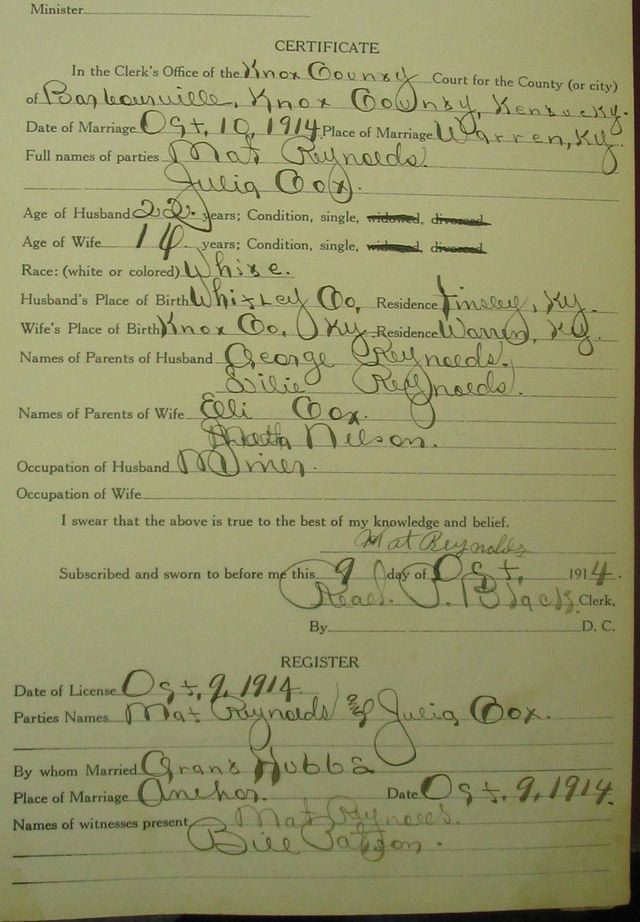 Minister
CERTIFICATE
In the Clerk's Office of the Knox County Court for the County (or city)
of Barbourville, Knox County, Kentucky.
Date of Marriage Oct, 10, 1914. Place of Marriage Warren, Ky.
Full names of parties Mat Reynolds.
Julia Cox.
Age of Husband 22. years; Condition, single, widowed, divorced
Age of Wife 14 years; Condition, single, widowed, divorced
Race: (white or colored) White.
Husband's Place of Birth Whitley Co, Residence Tinsley, Ky.
Wife's Place of Birth Knox Co, Ky. Residence Warren, Ky.
Names of Parents of Husband George Reynolds.
Reynolds.
Names of Parents of Wife Elli Cox.
Nelson.
Occupation of Husband Miner.
Occupation of Wife
I swear that the above is true to the best of my knowledge and belief.
Mat Reynolds
Subscribed and sworn to before me this 9 day of Oct, 1914.
Read. P. Black, Clerk,
By D. C.
REGISTER
Date of License Oct, 9, 1914
Parties Names Mat Reynolds & Julia Cox.
By whom Married Grant Hubbs
Place of Marriage Anchor. Date Oct, 9, 1914.
Names of witnesses present Mat Reynolds.
Bill Patton.